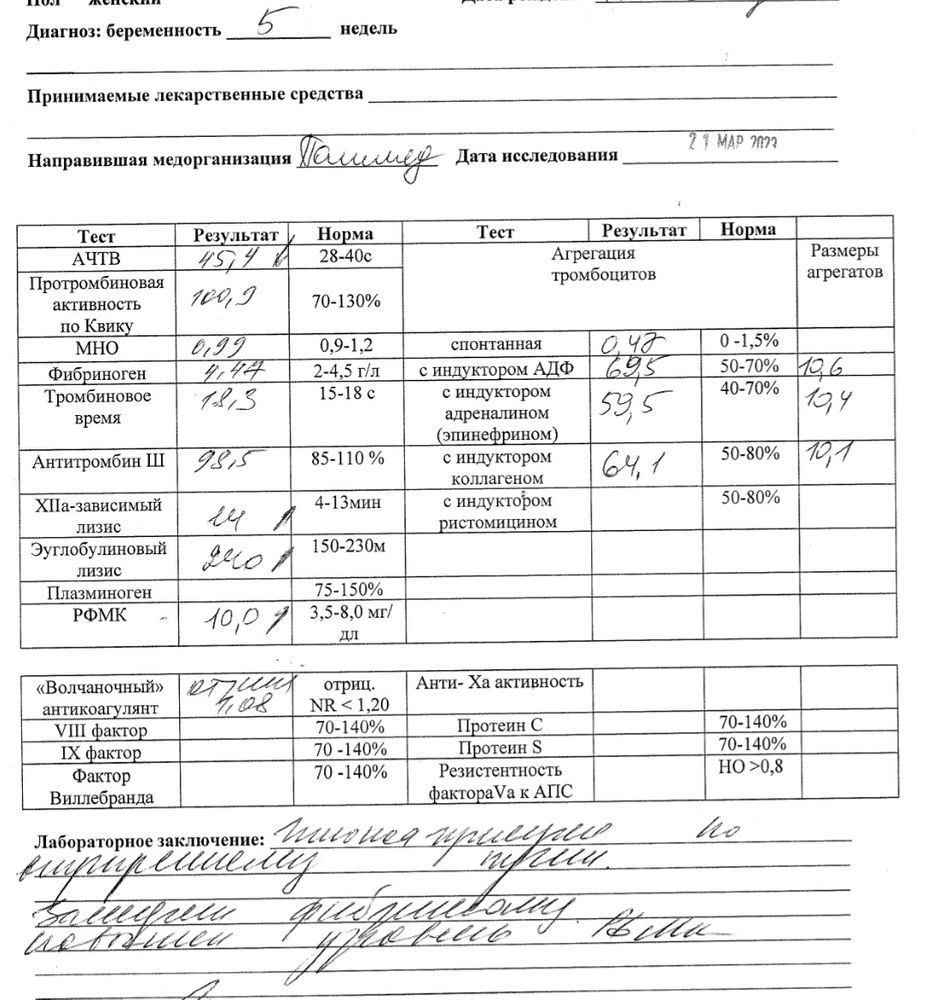 Пол женский
Диагноз: беременность 5 недель
Принимаемые лекарственные средства
Направившая медорганизация Дата исследования 21 МАР 2022
Тест Результат Норма Тест Результат Норма
АЧТВ 45,4 28-40с Агрегация тромбоцитов Размеры агрегатов
Протромбиновая активность по Квику 100,9 70-130%
МНО 0,99 0,9-1,2 спонтанная 0,48 0 -1,5%
Фибриноген 4,47 2-4,5 г/л с индуктором АДФ 69,5 50-70% 10,6
Тромбиновое время 18,3 15-18 с с индуктором адреналином (эпинефрином) 59,5 40-70% 10,4
Антитромбин Ш 98,5 85-110 % с индуктором коллагеном 64,1 50-80% 10,1
XIIа-зависимый лизис 14 4-13мин с индуктором ристомицином 50-80%
Эуглобулиновый лизис 240 150-230м
Плазминоген 75-150%
РФМК 10,0 3,5-8,0 мг/дл
«Волчаночный» антикоагулянт 1,08 отриц. NR < 1,20 Анти- Ха активность
VIII фактор 70-140% Протеин С 70-140%
IX фактор 70 -140% Протеин S 70-140%
Фактор Виллебранда 70 -140% Резистентность фактораVа к АПС НО >0,8
Лабораторное заключение: Гипокоагуляция по
внутреннему пути.
Замедлен фибринолиз.
Повышен уровень РФМК